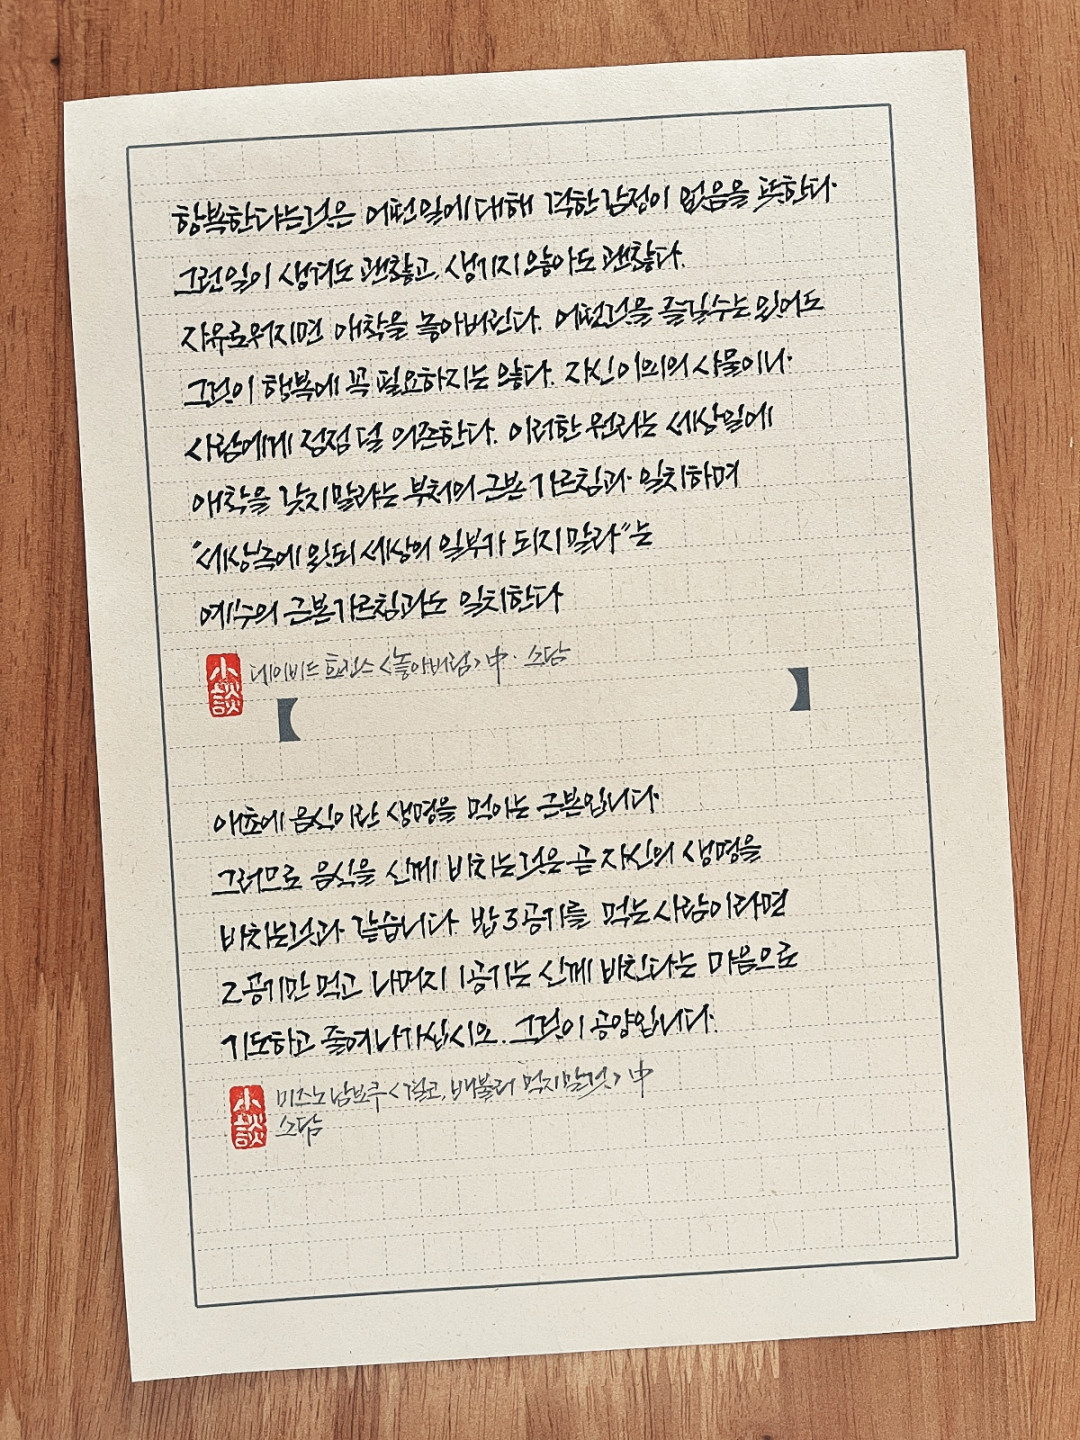 항복한다는것은 어떤일에 대해 격한감정이 없음을 뜻한다.
그런일이 생겨도 괜찮고, 생기지않아도 괜찮다.
자유로워지면 애착을 놓아버린다. 어떤것을 즐길수는 있어도
그것이 행복에 꼭 필요하지는 않다. 자신이외의 사물이나
사람에게 점점 덜 의존한다. 이러한 원리는 세상일에
애착을 갖지말라는 부처의 근본 가르침과 일치하며
"세상속에 있되 세상의 일부가 되지말라"는
예수의 근본가르침과도 일치한다
小談
데이비드 호킨스 <놓아버림> 中. 소담
애초에 음식이란 생명을 먹이는 근본입니다.
그러므로 음식을 신께 바치는것은 곧 자신의 생명을
바치는것과 같습니다 밥 3공기를 먹는 사람이라면
2공기만 먹고 나머지 1공기는 신께 바친다는 마음으로
기도하고 줄여나가십시오. 그것이 공양입니다.
小談
미즈노 남보쿠 <결코, 배불리 먹지말것> 中
소담